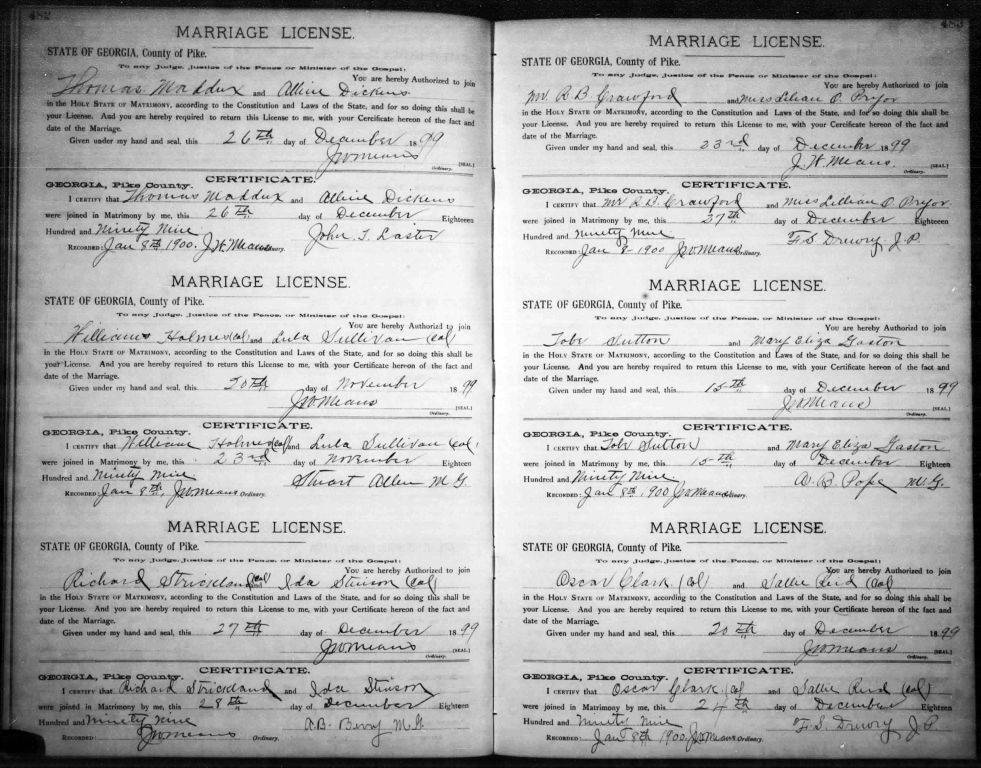 482
MARRIAGE LICENSE.
STATE OF GEORGIA, County of Pike.
To any Judge, Justice of the Peace or Minister of the Gospel:
You are hereby Authorized to join
Thomas Maddux and Alline Dickens
in the HOLY STATE OF MATRIMONY, according to the Constitution and Laws of the State, and for so doing this shall be
your License. And you are hereby required to return this License to me, with your Certificate hereon of the fact and
date of the Marriage.
Given under my hand and seal, this 26th day of December 1899
J W Means [SEAL]
Ordinary.
CERTIFICATE.
GEORGIA, Pike County.
I CERTIFY that Thomas Maddux and Alline Dickens
were joined in Matrimony by me, this 26th day of December Eighteen
Hundred and Ninety Nine John T. Laster
RECORDED: Jan 8th 1900. J W Means Ordinary.
MARRIAGE LICENSE.
STATE OF GEORGIA, County of Pike.
To any Judge, Justice of the Peace, or Minister of the Gospel:
You are hereby Authorized to join
Williams Holmes (Col) and Lula Sullivan (Col)
in the HOLY STATE OF MATRIMONY, according to the Constitution and Laws of the State, and for so doing this shall be
your License. And you are hereby required to return this License to me, with your Certificate hereon of the fact and
date of the Marriage.
Given under my hand and seal, this 20th day of November 1899
J W Means [SEAL]
Ordinary.
CERTIFICATE.
GEORGIA, Pike County.
I CERTIFY that William Holmes (Col) and Lula Sullivan (Col)
were joined in Matrimony by me, this 23rd day of November Eighteen
Hundred and Ninety Nine Stuart Allen M. G.
RECORDED Jan 8th, J W Means Ordinary.
MARRIAGE LICENSE.
STATE OF GEORGIA, County of Pike.
To any Judge, Justice of the Peace or Minister of the Gospel:
You are hereby Authorized to join
Richard Strickland (Col) and Ida Stinson (Col)
in the HOLY STATE OF MATRIMONY, according to the Constitution and Laws of the State, and for so doing this shall be
your License. And you are hereby required to return this License to me, with your Certificate hereon of the fact and
date of the Marriage.
Given under my hand and seal, this 27th day of December 1899
J W Means [SEAL]
Ordinary.
CERTIFICATE.
GEORGIA, Pike County
I CERTIFY that Richard Strickland and Ida Stinson
were joined in Matrimony by me, this 28th day of December Eighteen
Hundred and Ninety Nine A. B. Berry M. G.
RECORDED: J W Means Ordinary.
483
MARRIAGE LICENSE.
STATE OF GEORGIA, County of Pike.
To any Judge, Justice of the Peace or Minister of the Gospel:
You are hereby Authorized to join
Mr R B Crawford and Miss Lilian O. Pryor
in the HOLY STATE OF MATRIMONY, according to the Constitution and Laws of the State, and for so doing this shall be
your License. And you are hereby required to return this License to me, with your Certificate hereon of the fact and
date of the Marriage.
Given under my hand and seal, this 23rd day of December 1899
J. W. Means [SEAL]
Ordinary.
CERTIFICATE.
GEORGIA, Pike County.
I CERTIFY that Mr R B Crawford and Miss Lillian O Pryor
were joined in Matrimony by me, this 27th day of December Eighteen
Hundred and Ninety Nine F. S. Drewry J. P.
RECORDED: Jan 8 - 1900 J W Means Ordinary.
MARRIAGE LICENSE.
STATE OF GEORGIA, County of Pike.
To any Judge, Justice of the Peace, or Minister of the Gospel:
You are hereby Authorized to join
Tobe Sutton and Mary Eliza Gaston
in the HOLY STATE OF MATRIMONY, according to the Constitution and Laws of the State, and for so doing this shall be
your License. And you are hereby required to return this License to me, with your Certificate hereon of the fact and
date of the Marriage.
Given under my hand and seal, this 15th day of December 1899
J W Means [SEAL]
Ordinary.
CERTIFICATE.
GEORGIA, Pike County.
I CERTIFY that Tobe Sutton and Mary Eliza Gaston
were joined in Matrimony by me, this 15th day of December Eighteen
Hundred and Ninety Nine A. B. Pope M. G.
RECORDED: Jan 8th, 1900 J W Means Ordinary.
MARRIAGE LICENSE.
STATE OF GEORGIA, County of Pike.
To any Judge, Justice of the Peace or Minister of the Gospel:
You are hereby Authorized to join
Oscar Clark (Col) and Sallie Reid (Col)
in the HOLY STATE OF MATRIMONY, according to the Constitution and Laws of the State, and for so doing this shall be
your License. And you are hereby required to return this License to me, with your Certificate hereon of the fact and
date of the Marriage.
Given under my hand and seal, this 20th day of December 1899
J W Means [SEAL]
Ordinary.
CERTIFICATE.
GEORGIA, Pike County.
I CERTIFY that Oscar Clark (Col and Sallie Reid (Col)
were joined in Matrimony by me, this 24th day of December Eighteen
Hundred and Ninety Nine F. S. Drewry J. P.
RECORDED: Jan 8th 1900, J W Means Ordinary.